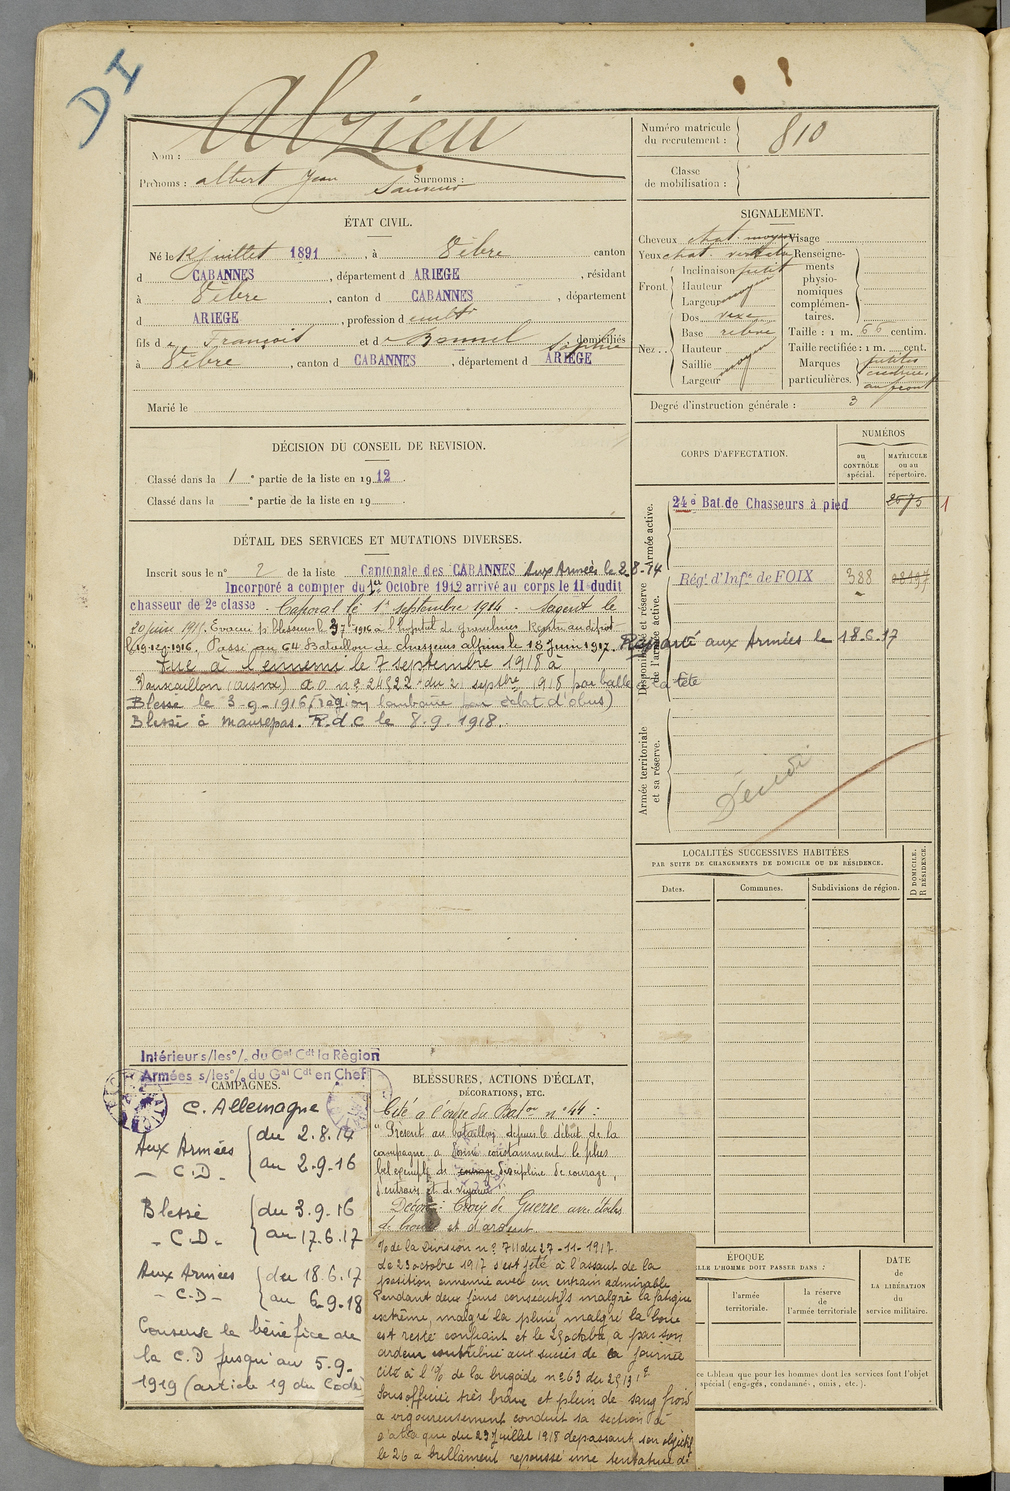 DI
Alzieu
Nom :
Prénoms : albert Jean Surnoms :
Sauveur
Numéro matricule
du recrutement :
810
Classe
de mobilisation :
ÉTAT CIVIL.
Né le 12 juillet 1891, à Vèbre canton
d CABANNES, département d ARIEGE, résidant
à Vèbre, canton d CABANNES, département
d ARIEGE, profession d cultr
fils d e François et d e Bonnel Sophie domiciliés
à Vèbre, canton d CABANNES, département d ARIEGE
Marié le
SIGNALEMENT.
Cheveux chat moyen Visage
Yeux chat
Renseigne-
ments
physio-
nomiques
complémen-
taires.
Front.
Inclinaison petit
Hauteur
Largeur moyen
Nez..
Dos vexe
Base relevé
Hauteur
Saillie moyen
Largeur
Taille : 1 m. 66 centim.
Taille rectifiée : 1 m. cent.
Marques
particulières.
petites
cicatrices
au front
Degré d'instruction générale : 3
DÉCISION DU CONSEIL DE REVISION.
Classé dans la 1 e partie de la liste en 1912.
Classé dans la e partie de la liste en 19 .
CORPS D'AFFECTATION.
NUMÉROS
au
CONTRÔLE
spécial.
MATRICULE
ou au
répertoire.
Armée active.
24e Bat. de Chasseurs à pied 2575 1
Disponibilité et réserve
de l'armée active.
Régt d'Infie de FOIX 388
Armée territoriale
et sa réserve.
Décédé
DÉTAIL DES SERVICES ET MUTATIONS DIVERSES.
Inscrit sous le n° 2 de la liste Cantonale des CABANNES Aux Armées le 2.8.14
Incorporé à compter du 1er Octobre 1912 arrivé au corps le 11 dudit
chasseur de 2e classe. Caporal le 1er septembre 1914. Sergent le
20 juin 1915. Evacué p. blessures le 3 7bre 1916 à l'hopital de Rentré au dépôt
le 19-12-1916. Passé au 64 Bataillon de chasseurs alpins le 18 Juin 1917. Reparti aux Armées le 18.6.17
Tué à l'ennemi le 7 septembre 1918 à
Vauxaillon (aisne) a.o. n° 24522 du 21 septbre 1918 par balle à la tête
Blessé le 3-9-1916 (région lombaire par éclat d'obus)
Blessé à Maurepas. R.d.C le 8.9.1918.
LOCALITÉS SUCCESSIVES HABITÉES
PAR SUITE DE CHANGEMENTS DE DOMICILE OU DE RÉSIDENCE.
Dates.
Communes.
Subdivisions de région.
D DOMICILE.
R RÉSIDENCE.
Intérieur s/les °/. du Gal Cdt la Région
Armées s/les °/. du Gal Cdt en Chef
CAMPAGNES.
C. Allemagne
Aux Armées du 2.8.14
- C.D. - au 2.9.16
Blessé du 3.9.16
- C.D. - au 17.6.17
Aux Armées du 18.6.17
- C.D - au 6-9-18
Conserve le bénéfice de
la C.D jusqu'au 5.9.
1919 (article 19 du Code)
BLESSURES, ACTIONS D'ÉCLAT,
DÉCORATIONS, ETC.
Cité à l'ordre du Baton n° 44 :
"Présent au bataillon depuis le début de la
campagne a donné constamment le plus
bel exemple de discipline de courage,
d'entrain et de vigueur"
Décoré : Croix de Guerre avec étoiles
de bronze et d'argent
O/ de la Division n° 711 du 27-11-1917.
de 23 octobre 1917 s'est jeté à l'assaut de la
position ennemie avec un entrain admirable
Pendant deux jours consecutifs malgré la fatigue
extrême, malgré la pluie, malgré la boue
est resté confiant et le 25 octobre a par son
ardeur contribué aux succès de la journée
Cité à l'O/ de la brigade n° 63 du
Sous officier très brave et plein de sang froid
a vigoureusement conduit sa section à
l'attaque du 23 Juillet 1918 depassant son objectif
le 26 a brillament repoussé une tentative de
ÉPOQUE
LLE L'HOMME DOIT PASSER DANS :
l'armée
territoriale.
la réserve
de
l'armée territoriale
DATE
de
LA LIBÉRATION
du
service militaire.
ce tableau que pour les hommes dont les services font l'objet
spécial (engagés, condamnés, omis, etc.).